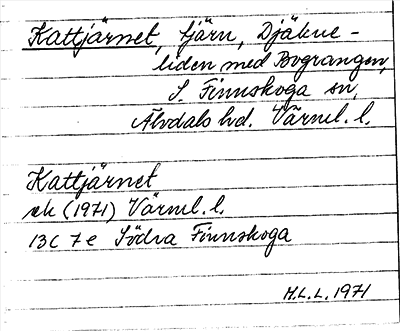 Kattjärnet, tjärn, Djäkne-
liden med Bograngen,
S. Finnskoga sn,
Älvdals hd. Värml. l.
Kattjärnet
ek (1971) Värml. l.
13C 7e Södra Finnskoga
H.L.L. 1971